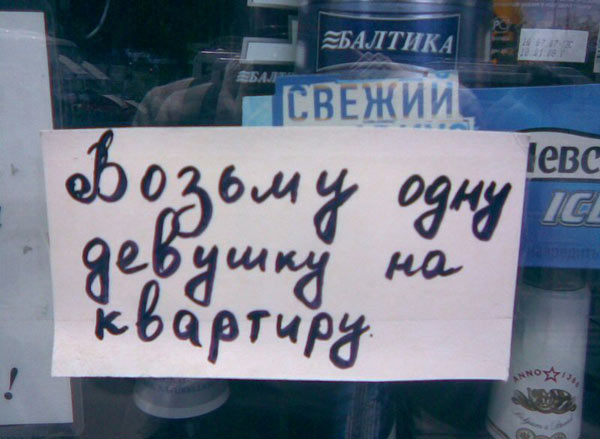 БАЛТИКА
СВЕЖИЙ
Возьму одну
девушку на
квартиру.
ICE
ANNO 1366
!